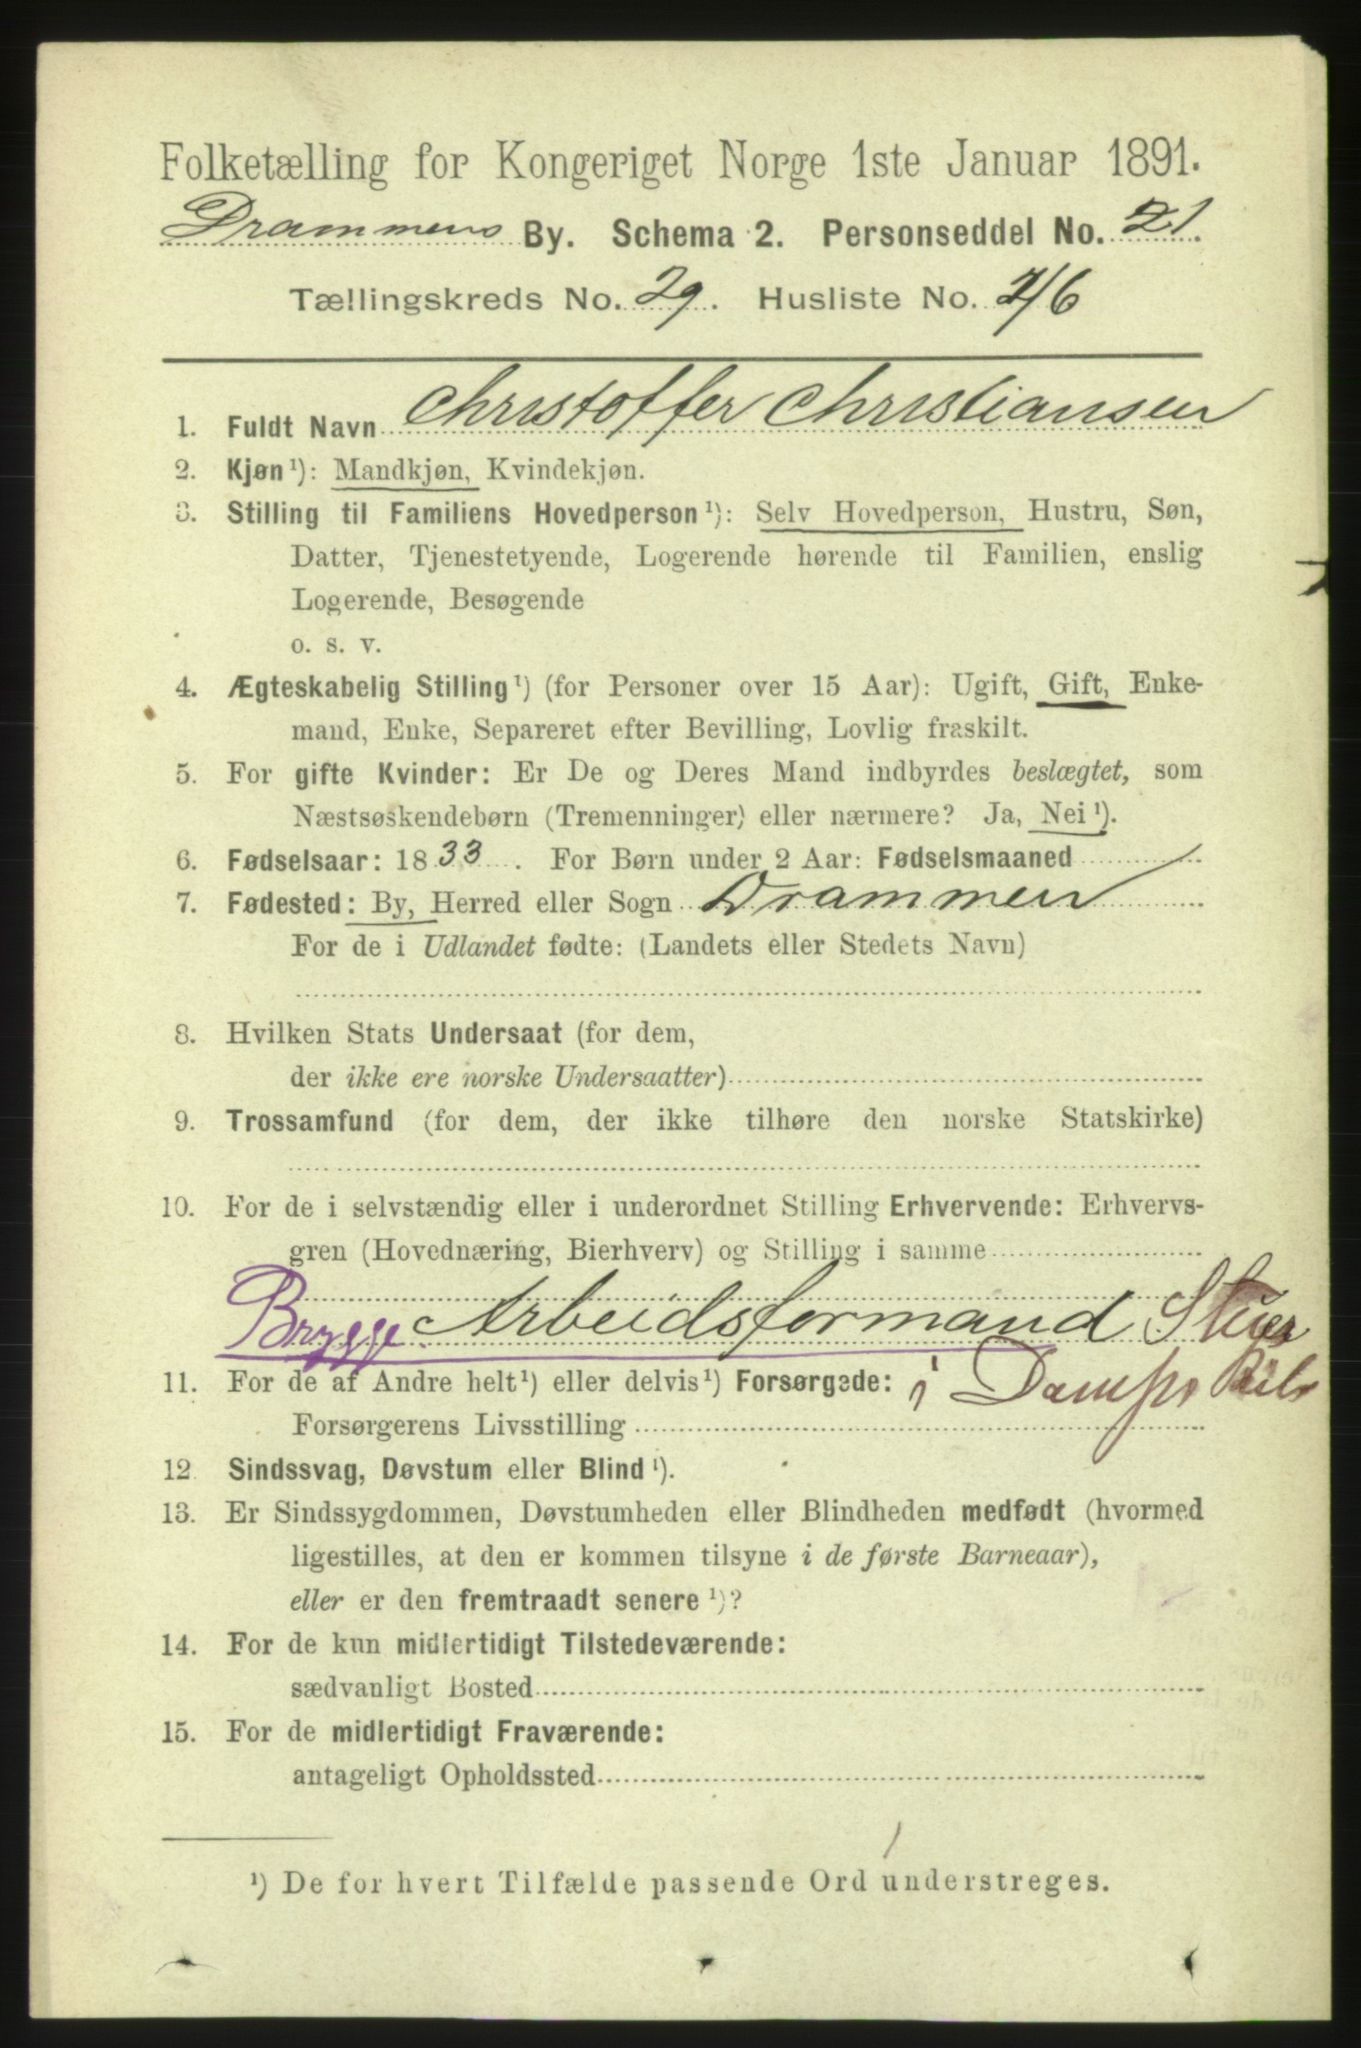 Folketælling for Kongeriget Norge 1ste Januar 1891.
Drammens By. Schema 2. Personseddel No. 21
Tællingskreds No. 29. Husliste No. 7/6
1. Fuldt Navn Christoffer Christiansen
2. Kjøn¹): Mandkjøn, Kvindekjøn.
3. Stilling til Familiens Hovedperson¹): Selv Hovedperson, Hustru, Søn,
Datter, Tjenestetyende, Logerende hørende til Familien, enslig
Logerende, Besøgende
o. s. v.
4. Ægteskabelig Stilling¹) (for Personer over 15 Aar): Ugift, Gift, Enke-
mand, Enke, Separeret efter Bevilling, Lovlig fraskilt.
5. For gifte Kvinder: Er De og Deres Mand indbyrdes beslægtet, som
Næstsøskendebørn (Tremenninger) eller nærmere? Ja, Nei¹).
6. Fødselsaar: 1833. For Børn under 2 Aar: Fødselsmaaned
7. Fødested: By, Herred eller Sogn Drammen
For de i Udlandet fødte: (Landets eller Stedets Navn)
8. Hvilken Stats Undersaat (for dem,
der ikke ere norske Undersaatter)
9. Trossamfund (for dem, der ikke tilhøre den norske Statskirke)
10. For de i selvstændig eller i underordnet Stilling Erhvervende: Erhvervs-
gren (Hovednæring, Bierhverv) og Stilling i samme
Brygge. Arbeidsformand
11. For de af Andre helt¹) eller delvis¹) Forsørgede: i
Forsørgerens Livsstilling
12 Sindssvag, Døvstum eller Blind¹).
13. Er Sindssygdommen, Døvstumheden eller Blindheden medfødt (hvormed
ligestilles, at den er kommen tilsyne i de første Barneaar),
eller er den fremtraadt senere¹)?
14. For de kun midlertidigt Tilstedeværende:
sædvanligt Bosted
15. For de midlertidigt Fraværende:
antageligt Opholdssted
¹) De for hvert Tilfælde passende Ord understreges.